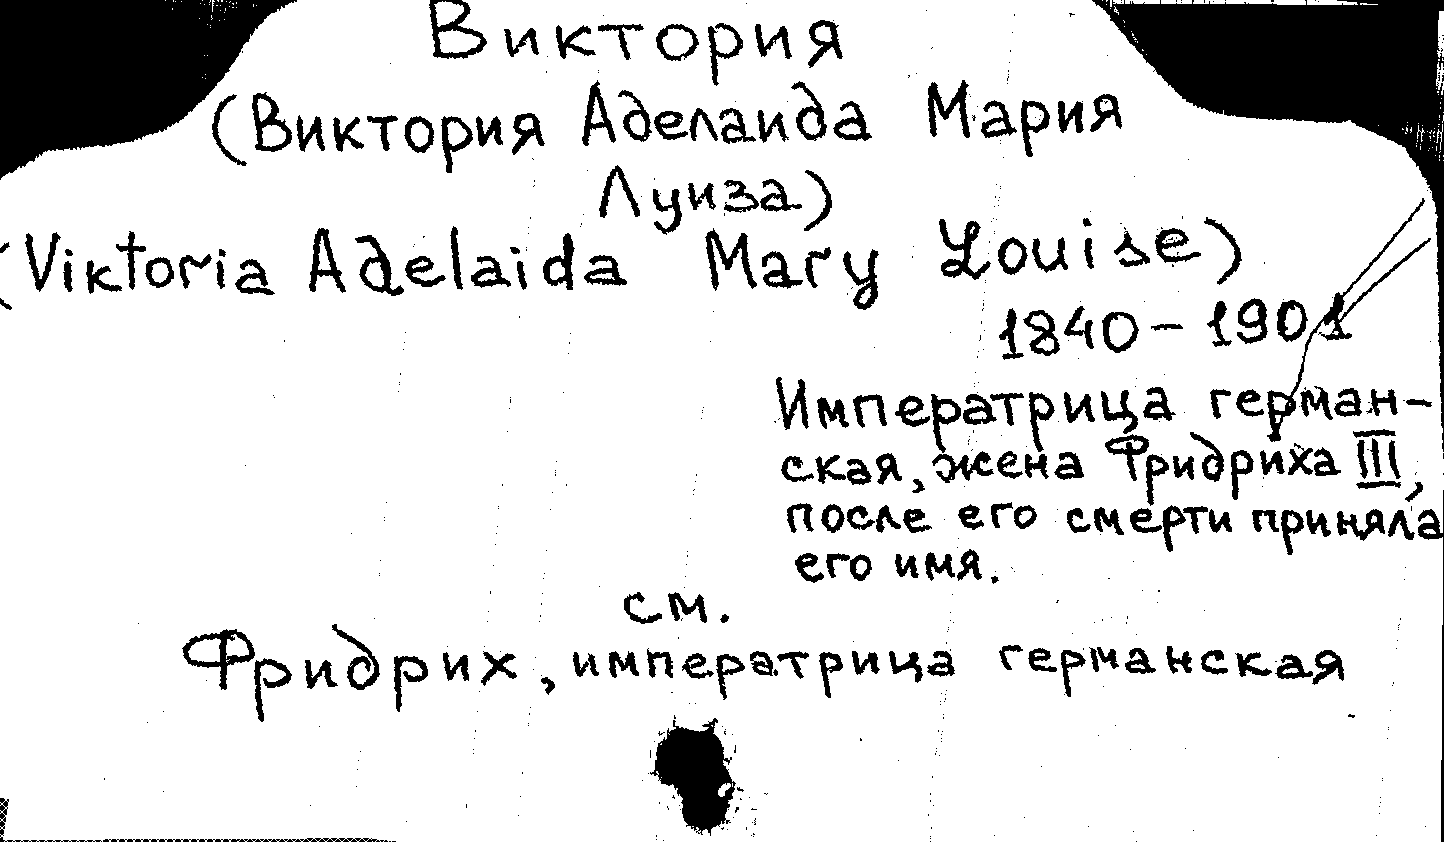 Виктория
(Виктория Аделаида Мария
Луиза)
(Viktoria Adelaida Mary Louise)
1840-1901
Императрица герман-
ская, жена Фридриха III,
после его смерти приняла
его имя.
см.
Фридрих, императрица германская